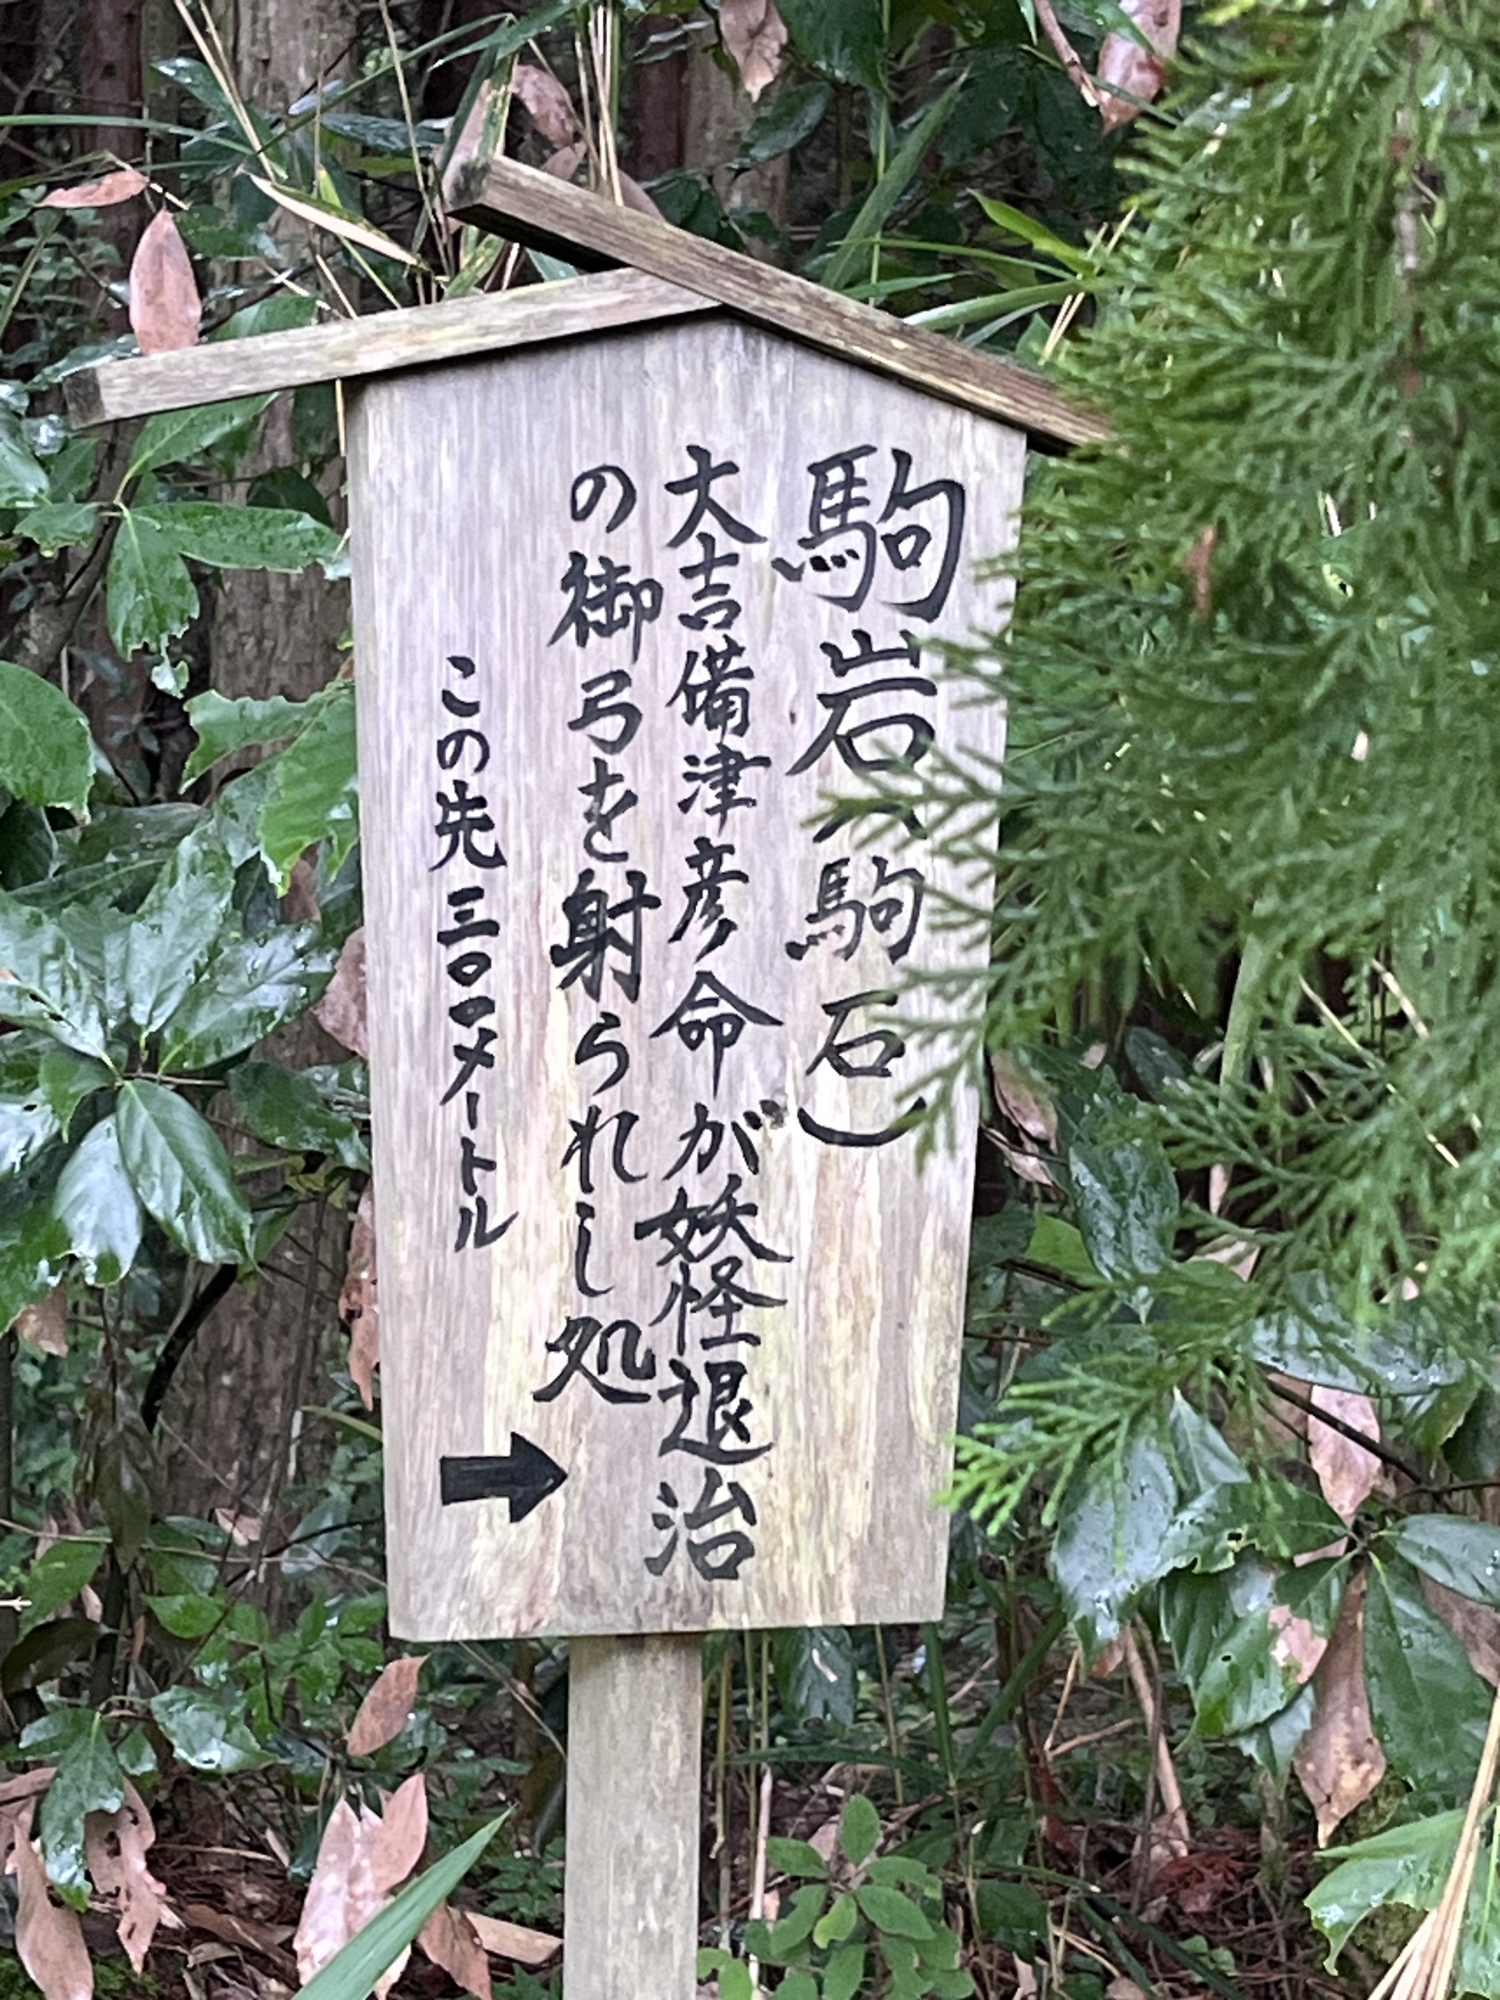 駒岩（駒石）
大吉備津彦命が妖怪退治
の御弓を射られし処
この先三〇〇メートル